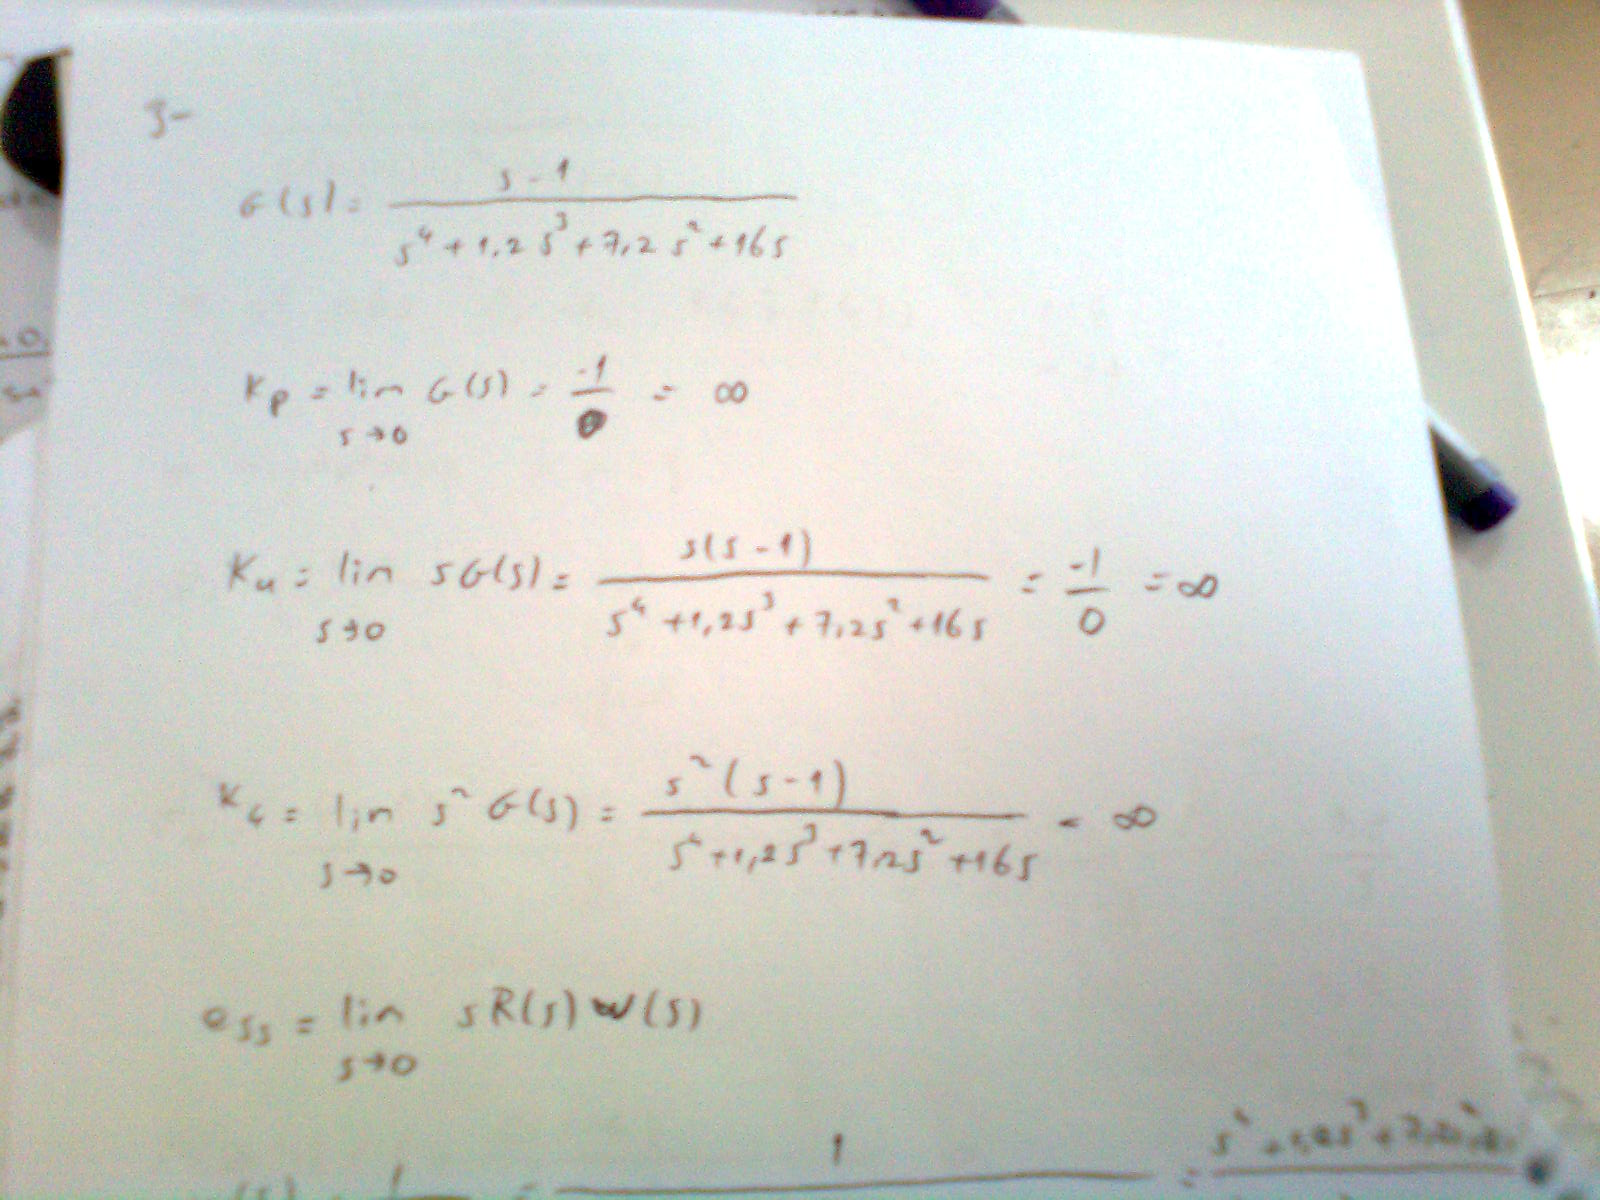 3-
G(s) = (s-1)/(s⁴+1,2s³+7,2s²+16s)
Kp = lim s→0 G(s) = -1/0 = ∞
Ku = lim s→0 sG(s) = s(s-1)/(s⁴+1,2s³+7,2s²+16s) = -1/0 = ∞
lim s→0 s² G(s) = s²(s-1)/(s⁴+1,2s³+7,2s²+16s) = ∞
ess = lim s→0 sR(s)W(s)